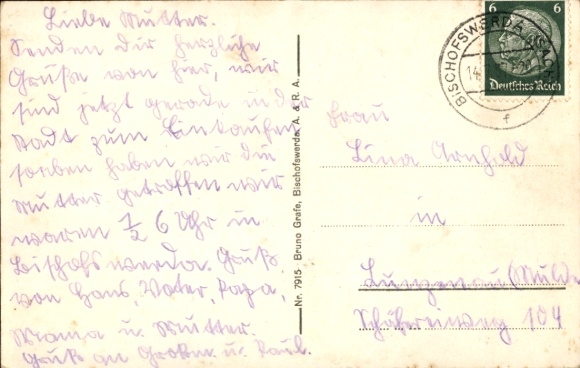 Liebe Mutter.
Senden Dir herzliche
Grüße von hier, wir
sind jetzt gerade in der
Stadt zum Einkaufen
soeben haben wir die
Mutter getroffen wir
waren ½ 6 Uhr in
Bischofswerda. Gruß
von Hans, Vater, Papa,
Mama u. Mutter.
Gruß an Großm. u. Paul.
Nr. 7915 Bruno Grafe, Bischofswerda. A. & R. A.
BISCHOFSWERDA (SACHS)
14.
f
6 6
Deutsches Reich
Frau
Lina Arnhold
in
Lunzenau (Mulde
Schäfereiweg 104